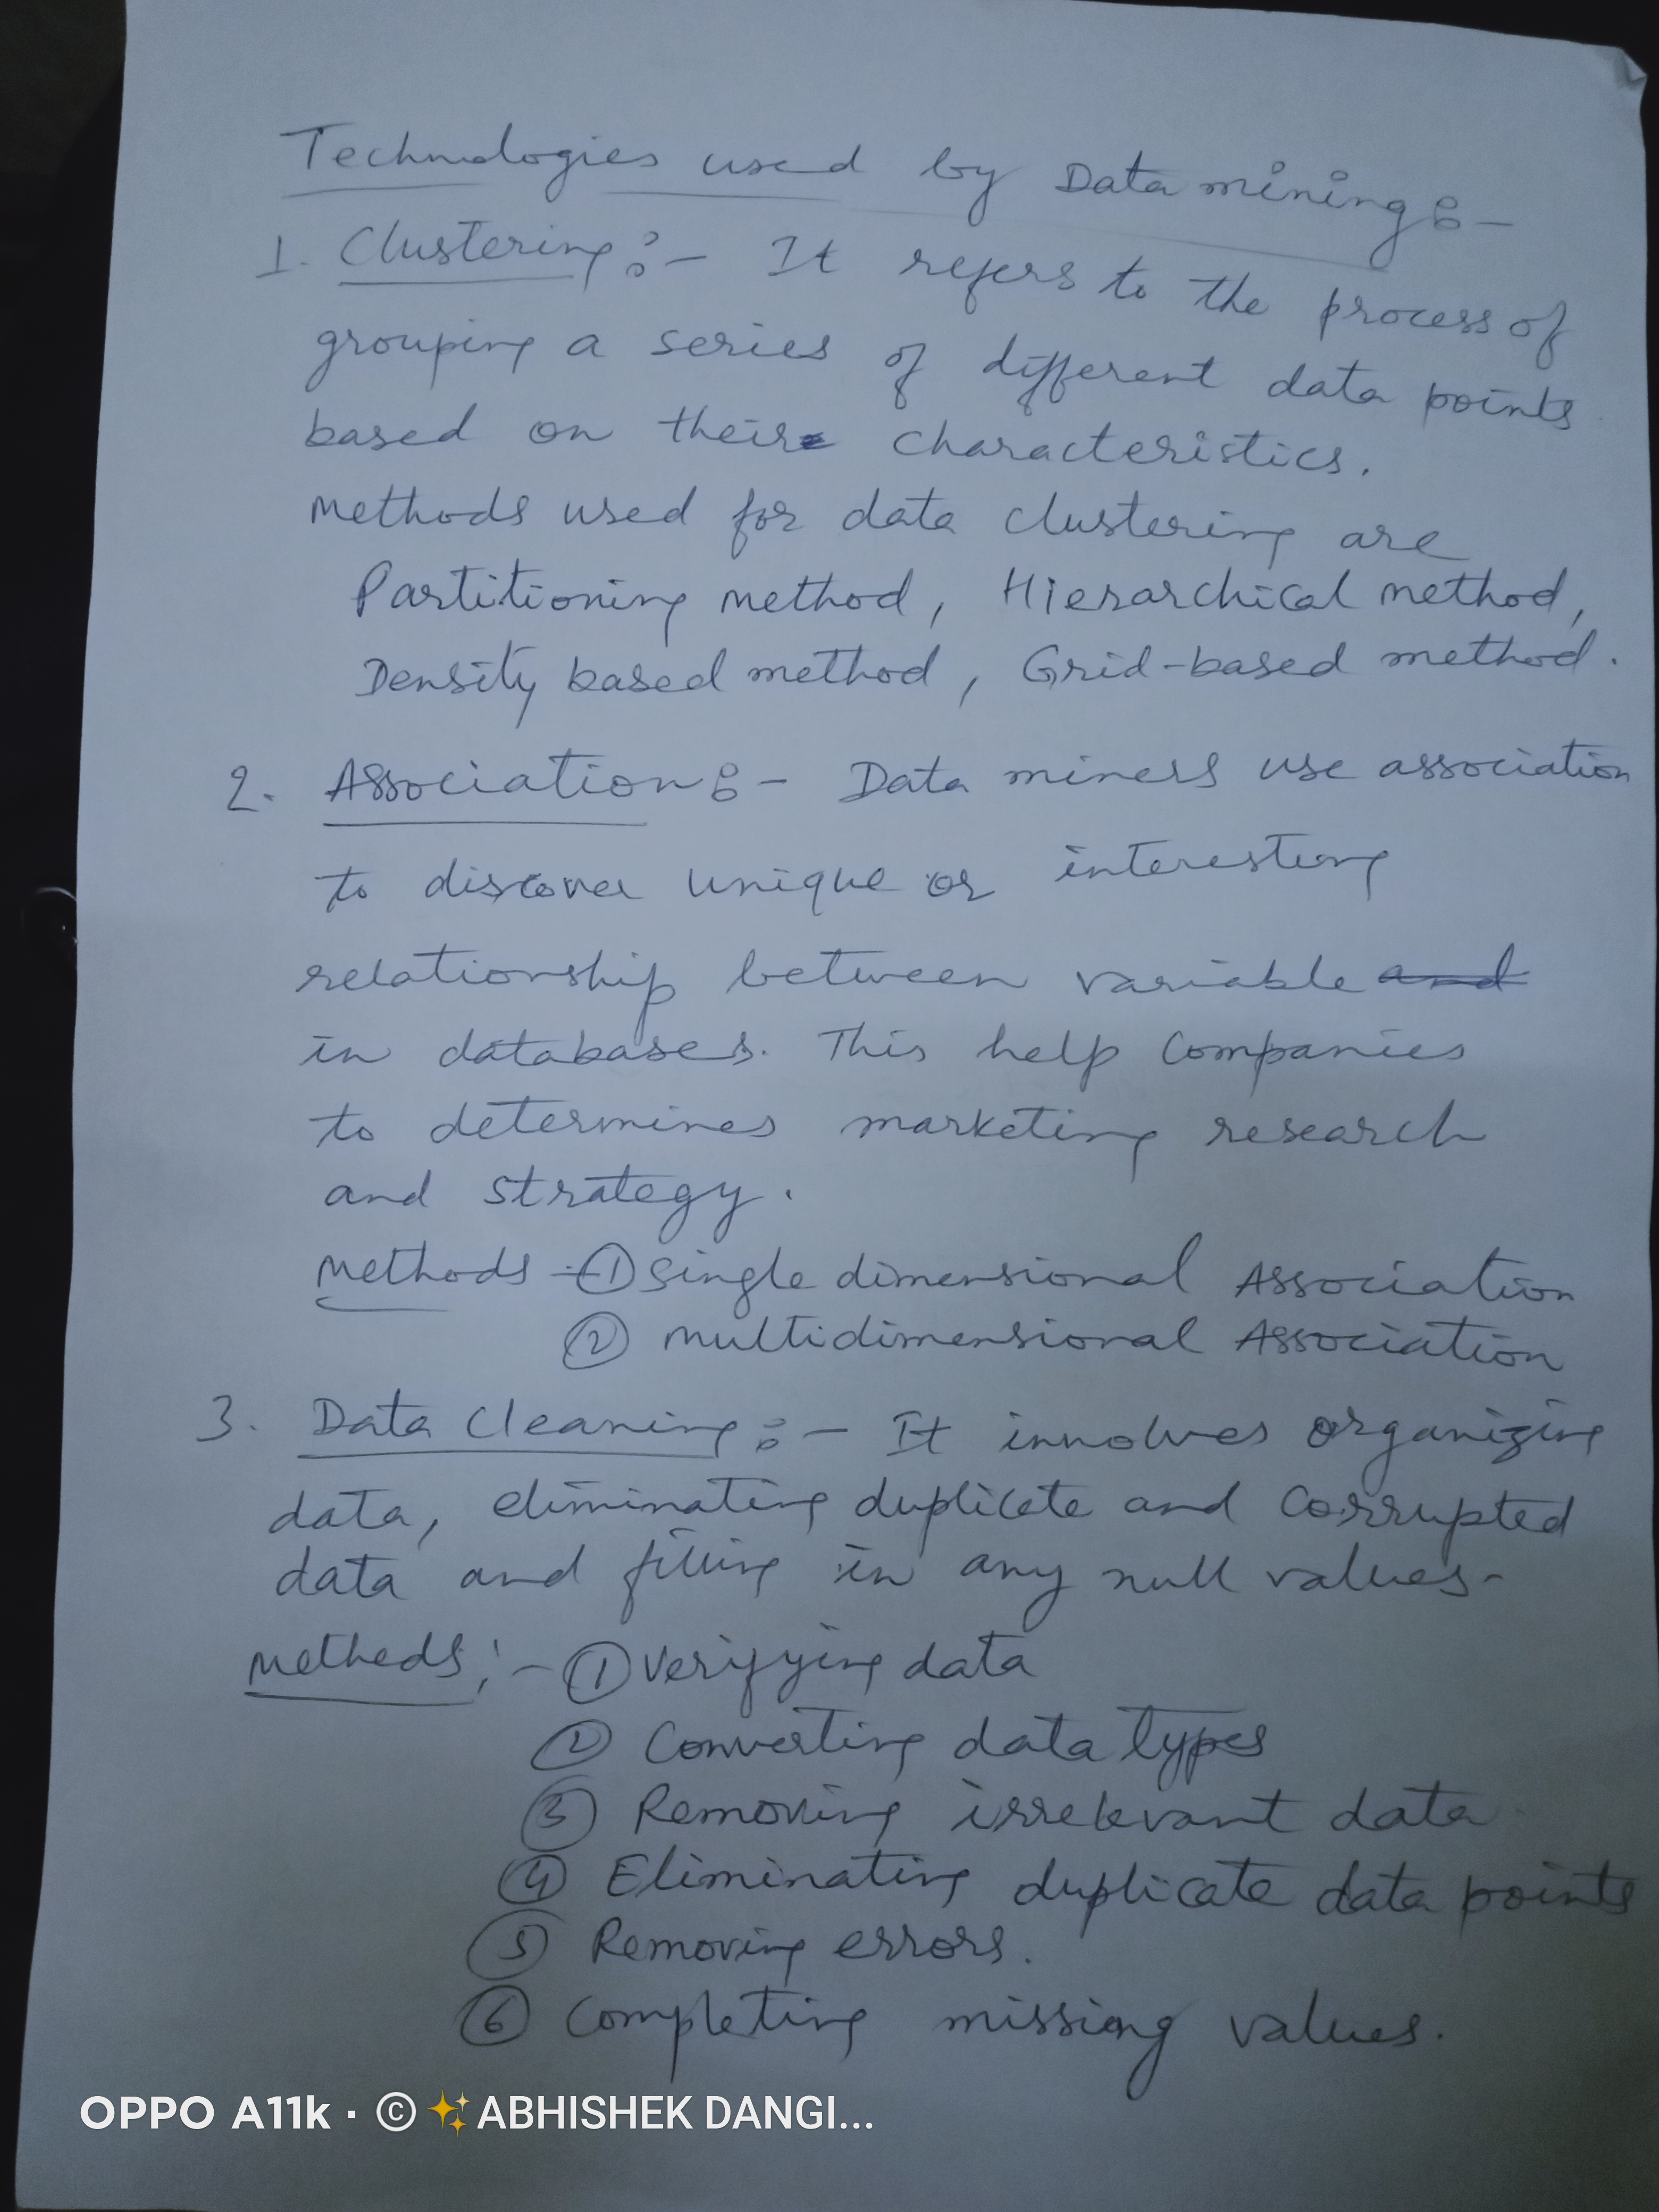 Technologies used by Data mining :-
1. Clustering :- It refers to the process of
grouping a series of different data points
based on their characteristics.
Methods used for data clustering are
Partitioning method, Hierarchical method,
Density based method, Grid-based method.
2. Association :- Data miners use association
to discover unique or interesting
relationship between variable and
in databases. This help Companies
to determines marketing research
and strategy.
Methods - ① Single dimensional Association
② Multidimensional Association
3. Data Cleaning :- It involves organizing
data, eliminating duplicate and Corrupted
data and filling in any null values-
Methods :- ① Verifying data
② Converting data types
③ Removing irrelevant data
④ Eliminating duplicate data points
⑤ Removing errors.
⑥ Completing missing values.
OPPO A11k · © ✨ABHISHEK DANGI...